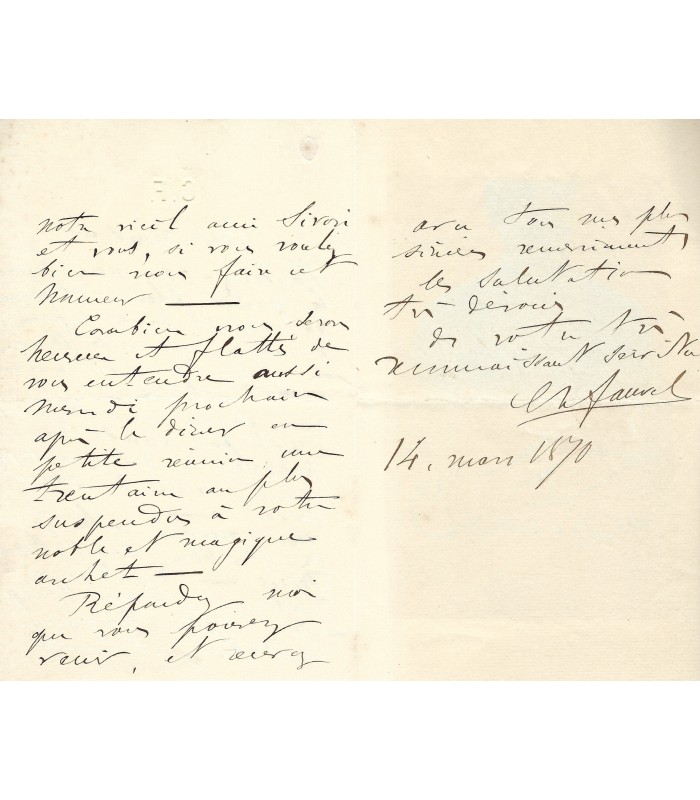 notre vieil ami Sivori
et vous, si vous voulez
bien nous faire cet
honneur —
Combien nous serons
heureux et flattés de
vous entendre aussi
prochain
après le diner en
petite réunion, une
trentaine au plus
suspendus à votre
noble et magique
archet —
Répondez moi
que vous pouvez
venir, et
avec tous mes plus
sincères remerciments
les salutations
très dévoués
de votre très
reconnaissant serviteur
Ch Fauvel
14. mars 1870